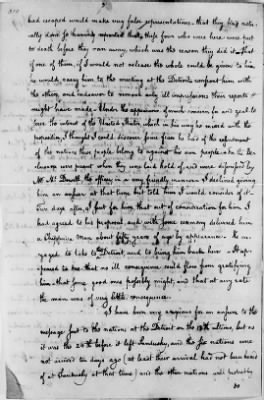 had escaped would make very false representations, that they had act-
ually done so having reported that these four who were here were put
to death before they ran away, which was the reason they did it – that
if one of them, if I would not release the whole could be given to him
he would carry him to the meeting at the Detroit confront him with
the others, and endeavor to remove any ill impressions their reports
might have made – Under the appearance of much concern for and zeal to
serve the interest of the United States, which in his way he mixed with the
persuasion, I thought I could discover some fear he had of the resentment
of the nation these people belong to against his own people, who to the
number were present when they were laid hold of, and were disposed by
Mr McDowell the officer in a very friendly manner. I declined giving
him an answer at that time, but told him I would consider of it –
Two days after, I sent for him, that out of consideration for him I
had agreed to his proposal, and with some ceremony delivered him
a Chippewa man about fifty years of age by appearance. He en-
gaged to take to the Detroit, and to bring him back here – It ap-
peared to me that no ill consequence could flow from gratifying
him – that some good one probably might, and that at any rate
the man was of very little consequence.
I have been very anxious for an answer to the
message sent to the nations at the Detroit on the 13th ultimo, but as
it was the 20th before it left Sandusky, and the six nations were
not arrived ten days ago (at least their arrival had not been heard
of at Sandusky at that time) and the other nations will probably
do